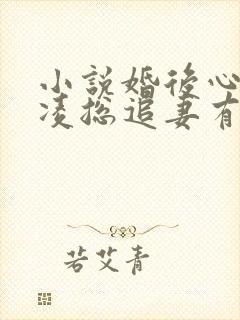 小說婚後心
凌總追妻有
若艾青